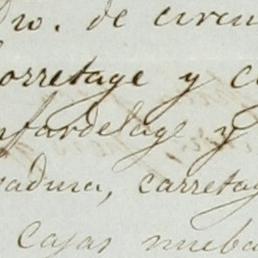 no. de circu
orretage y c
nfardelage y
sadura, carretag
cajas nueba